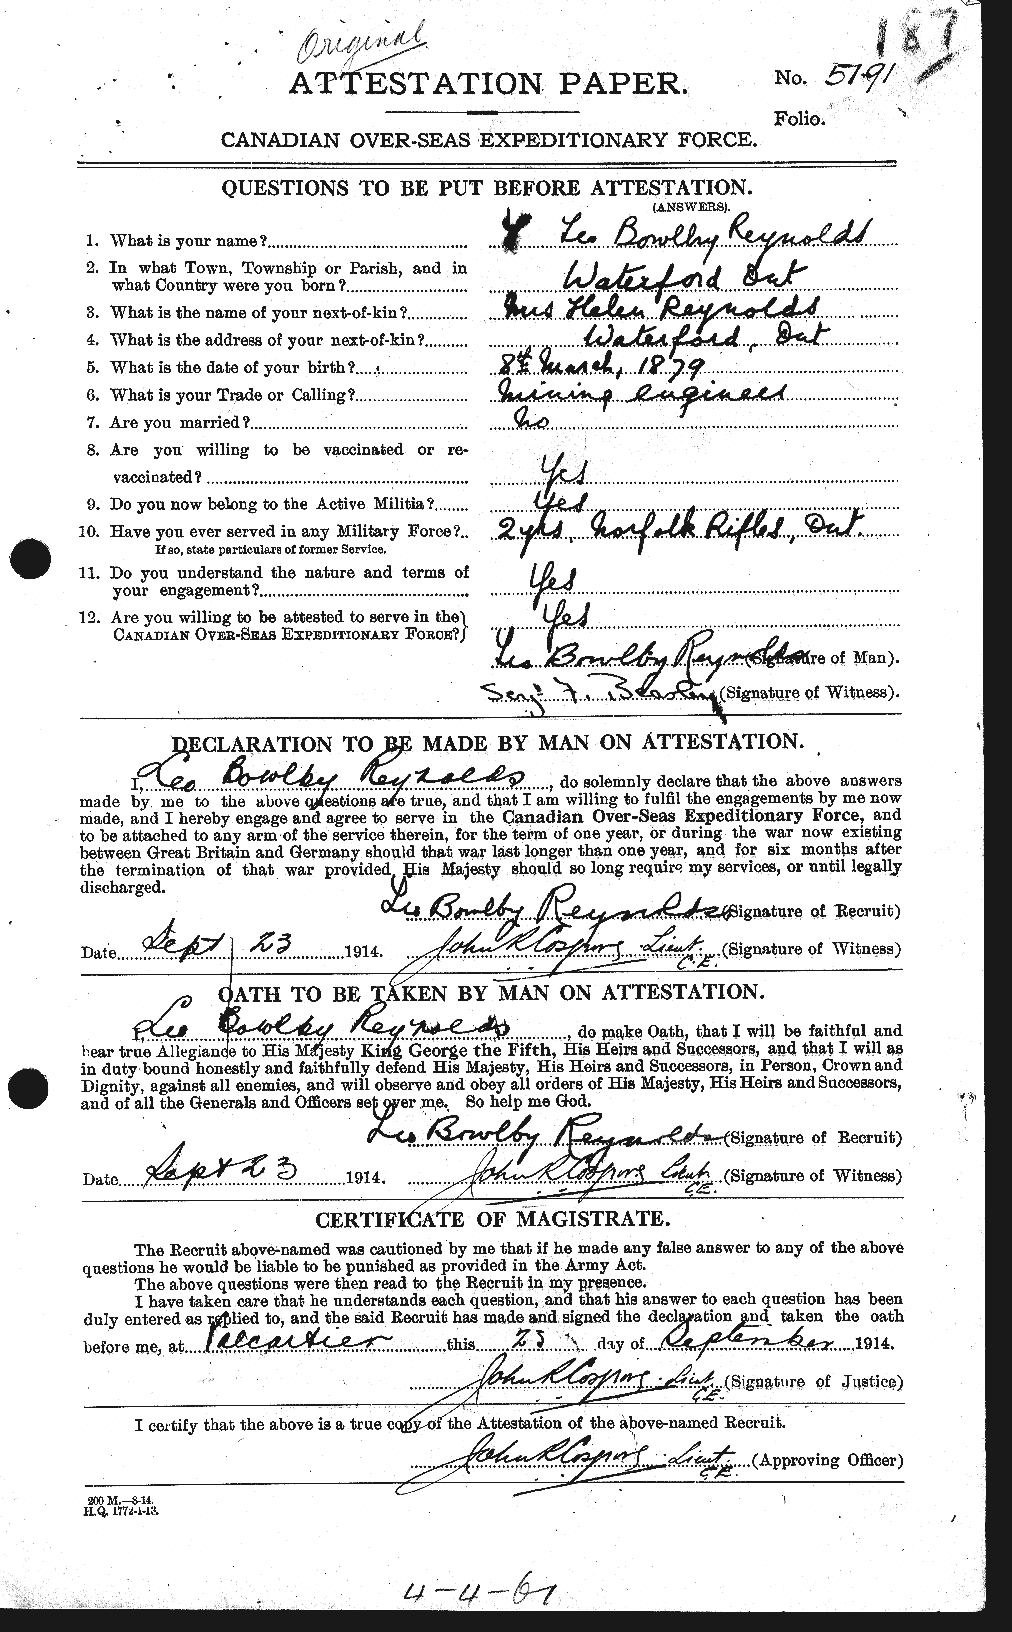 Original
187
ATTESTATION PAPER.
No. 5191
Folio.
CANADIAN OVER-SEAS EXPEDITIONARY FORCE.
QUESTIONS TO BE PUT BEFORE ATTESTATION.
(ANSWERS).
1. What is your name? Leo Bowlby Reynolds
2. In what Town, Township or Parish, and in
what Country were you born? Waterford Ont
3. What is the name of your next-of-kin? Mrs Helen Reynolds
4. What is the address of your next-of-kin? Waterford, Ont
5. What is the date of your birth? 8th March, 1879
6. What is your Trade or Calling? Mining engineer
7. Are you married? No
8. Are you willing to be vaccinated or re-
vaccinated? Yes
9. Do you now belong to the Active Militia? Yes
10. Have you ever served in any Military Force? 2 yrs, Norfolk Rifles, Ont.
If so, state particulars of former Service.
11. Do you understand the nature and terms of
your engagement? Yes
12. Are you willing to be attested to serve in the
CANADIAN OVER-SEAS EXPEDITIONARY FORCE? Yes
Leo Bowlby Reynolds (Signature of Man).
(Signature of Witness).
DECLARATION TO BE MADE BY MAN ON ATTESTATION.
I, Leo Bowlby Reynolds, do solemnly declare that the above answers
made by me to the above questions are true, and that I am willing to fulfil the engagements by me now
made, and I hereby engage and agree to serve in the Canadian Over-Seas Expeditionary Force, and
to be attached to any arm of the service therein, for the term of one year, or during the war now existing
between Great Britain and Germany should that war last longer than one year, and for six months after
the termination of that war provided His Majesty should so long require my services, or until legally
discharged.
Leo Bowlby Reynolds (Signature of Recruit)
Date Sept 23 1914. John R Lieut. C.E. (Signature of Witness)
OATH TO BE TAKEN BY MAN ON ATTESTATION.
I, Leo Bowlby Reynolds, do make Oath, that I will be faithful and
bear true Allegiance to His Majesty King George the Fifth, His Heirs and Successors, and that I will as
in duty bound honestly and faithfully defend His Majesty, His Heirs and Successors, in Person, Crown and
Dignity, against all enemies, and will observe and obey all orders of His Majesty, His Heirs and Successors,
and of all the Generals and Officers set over me. So help me God.
Leo Bowlby Reynolds (Signature of Recruit)
Date Sept 23 1914. John R Lieut. C.E. (Signature of Witness)
CERTIFICATE OF MAGISTRATE.
The Recruit above-named was cautioned by me that if he made any false answer to any of the above
questions he would be liable to be punished as provided in the Army Act.
The above questions were then read to the Recruit in my presence.
I have taken care that he understands each question, and that his answer to each question has been
duly entered as replied to, and the said Recruit has made and signed the declaration and taken the oath
before me, at Valcartier this 23 day of September 1914.
John R Lieut. C.E. (Signature of Justice)
I certify that the above is a true copy of the Attestation of the above-named Recruit.
John R Lieut. C.E. (Approving Officer)
200 M.—8-14.
H.Q. 1772-1-13.
4-4-61